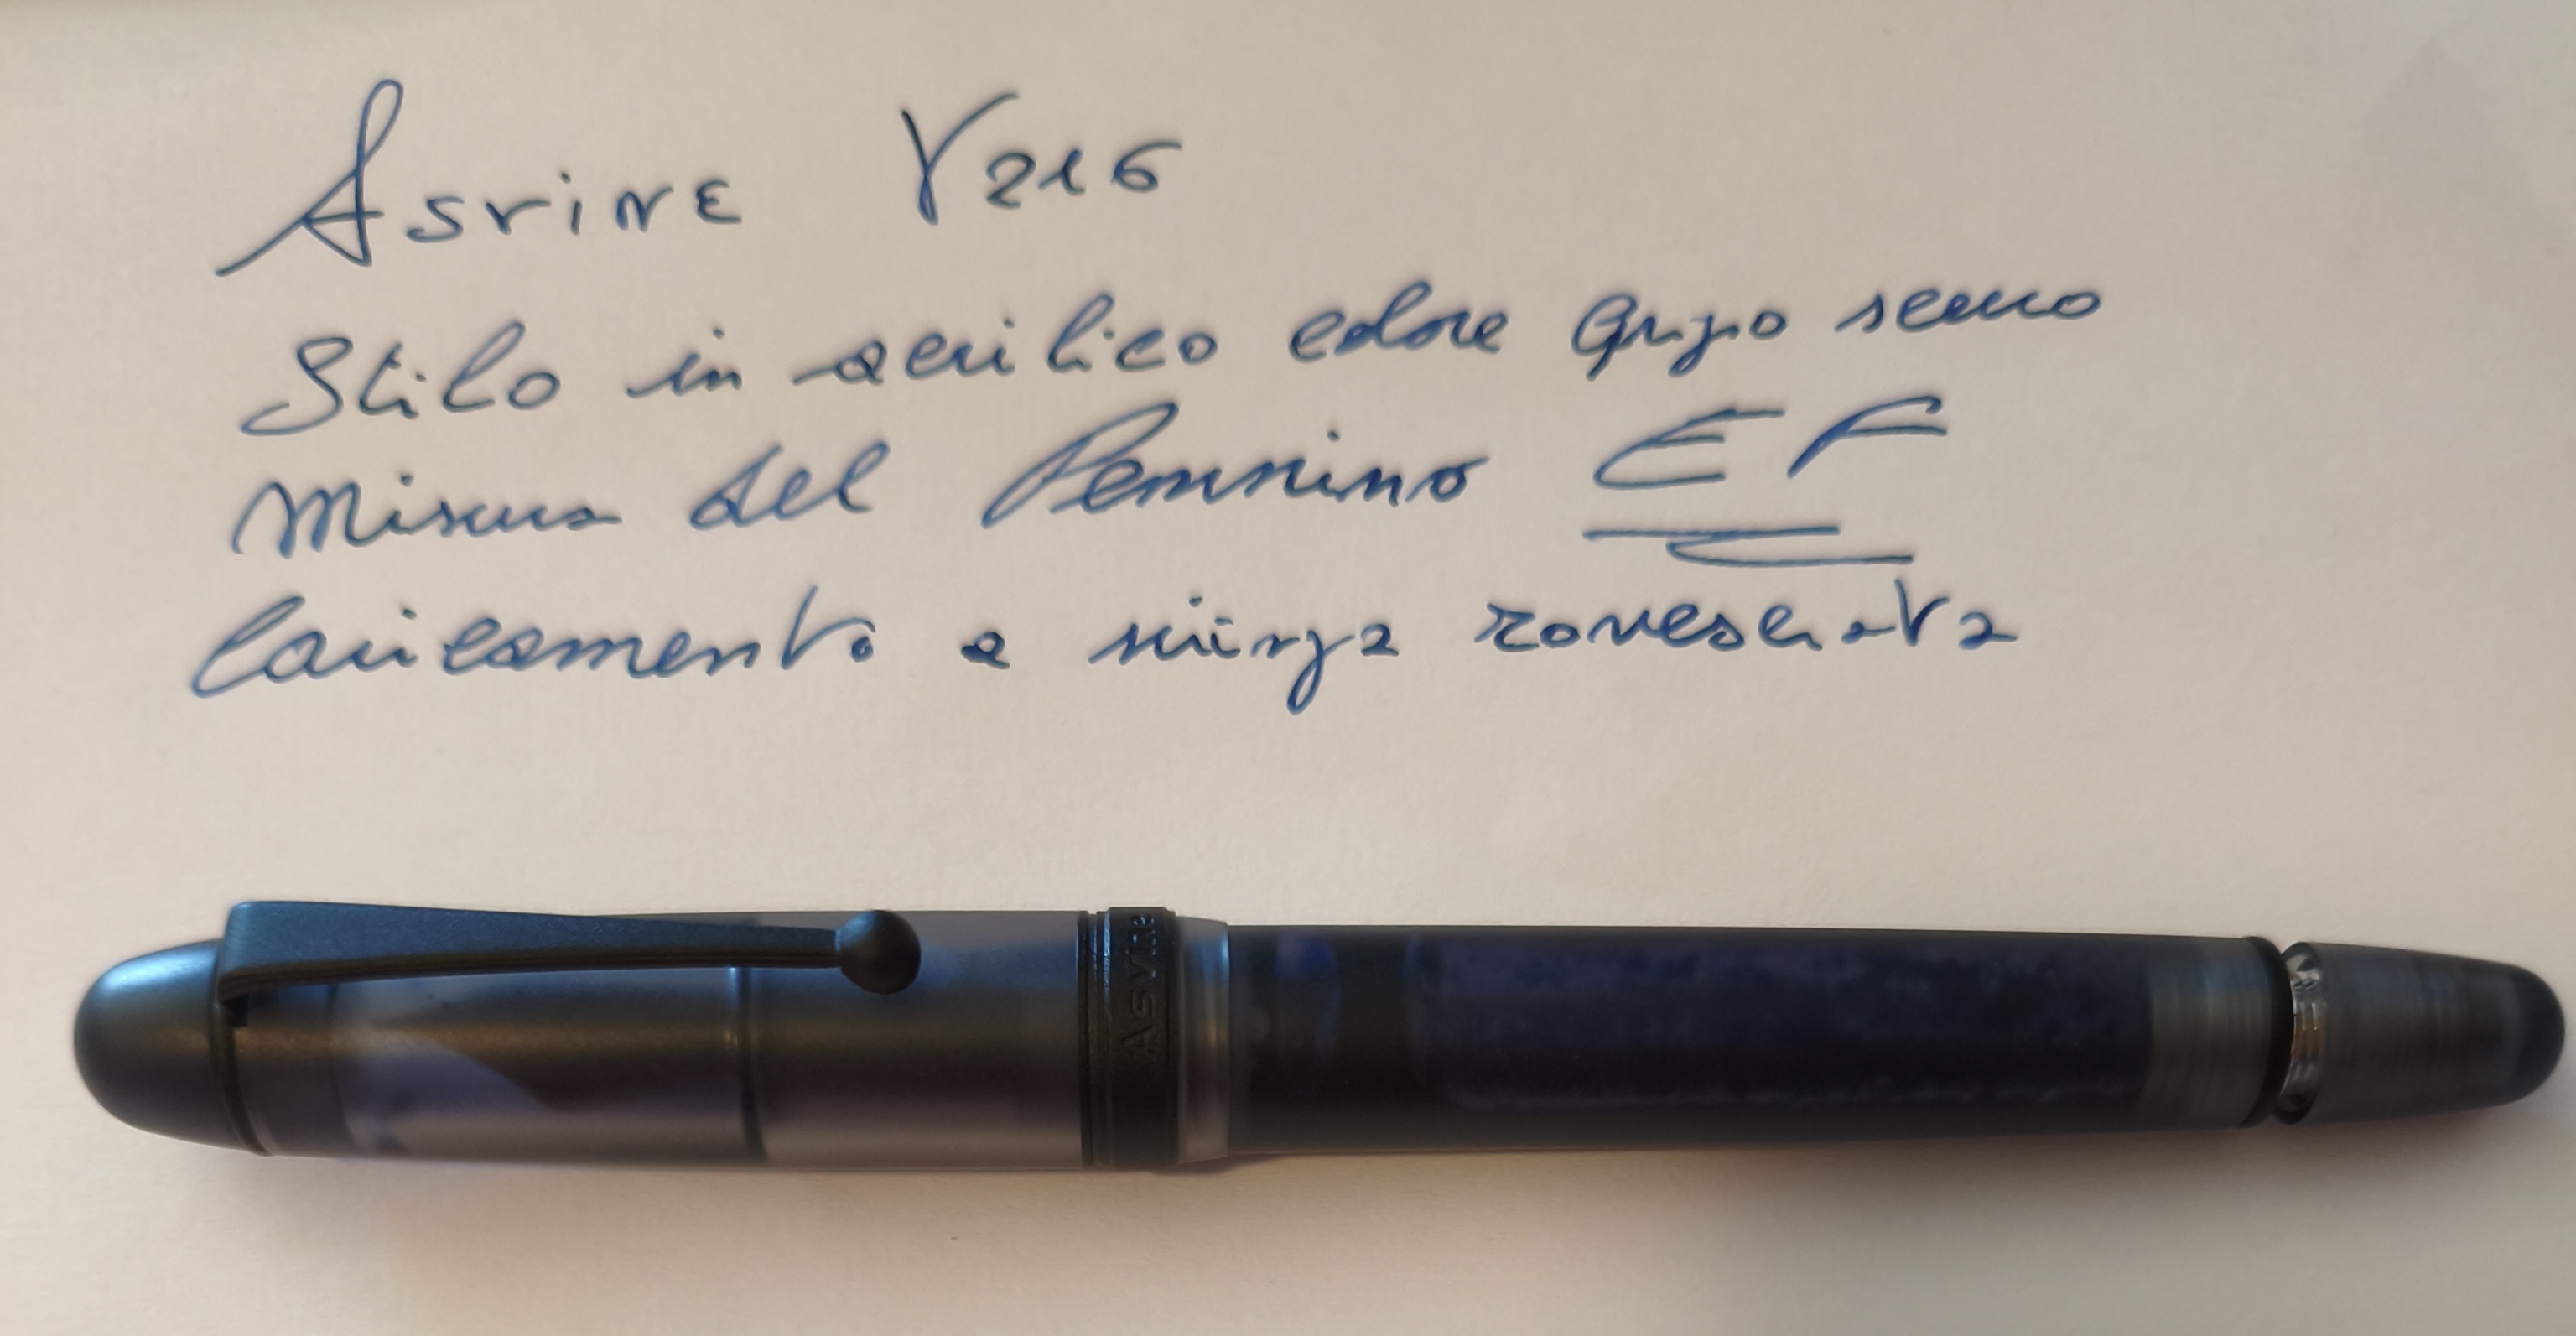 Asvine V216
Stilo in acrilico colore grigio scuro
Misura del Pennino EF
Caricamento a siringa rovesciata
Asvine